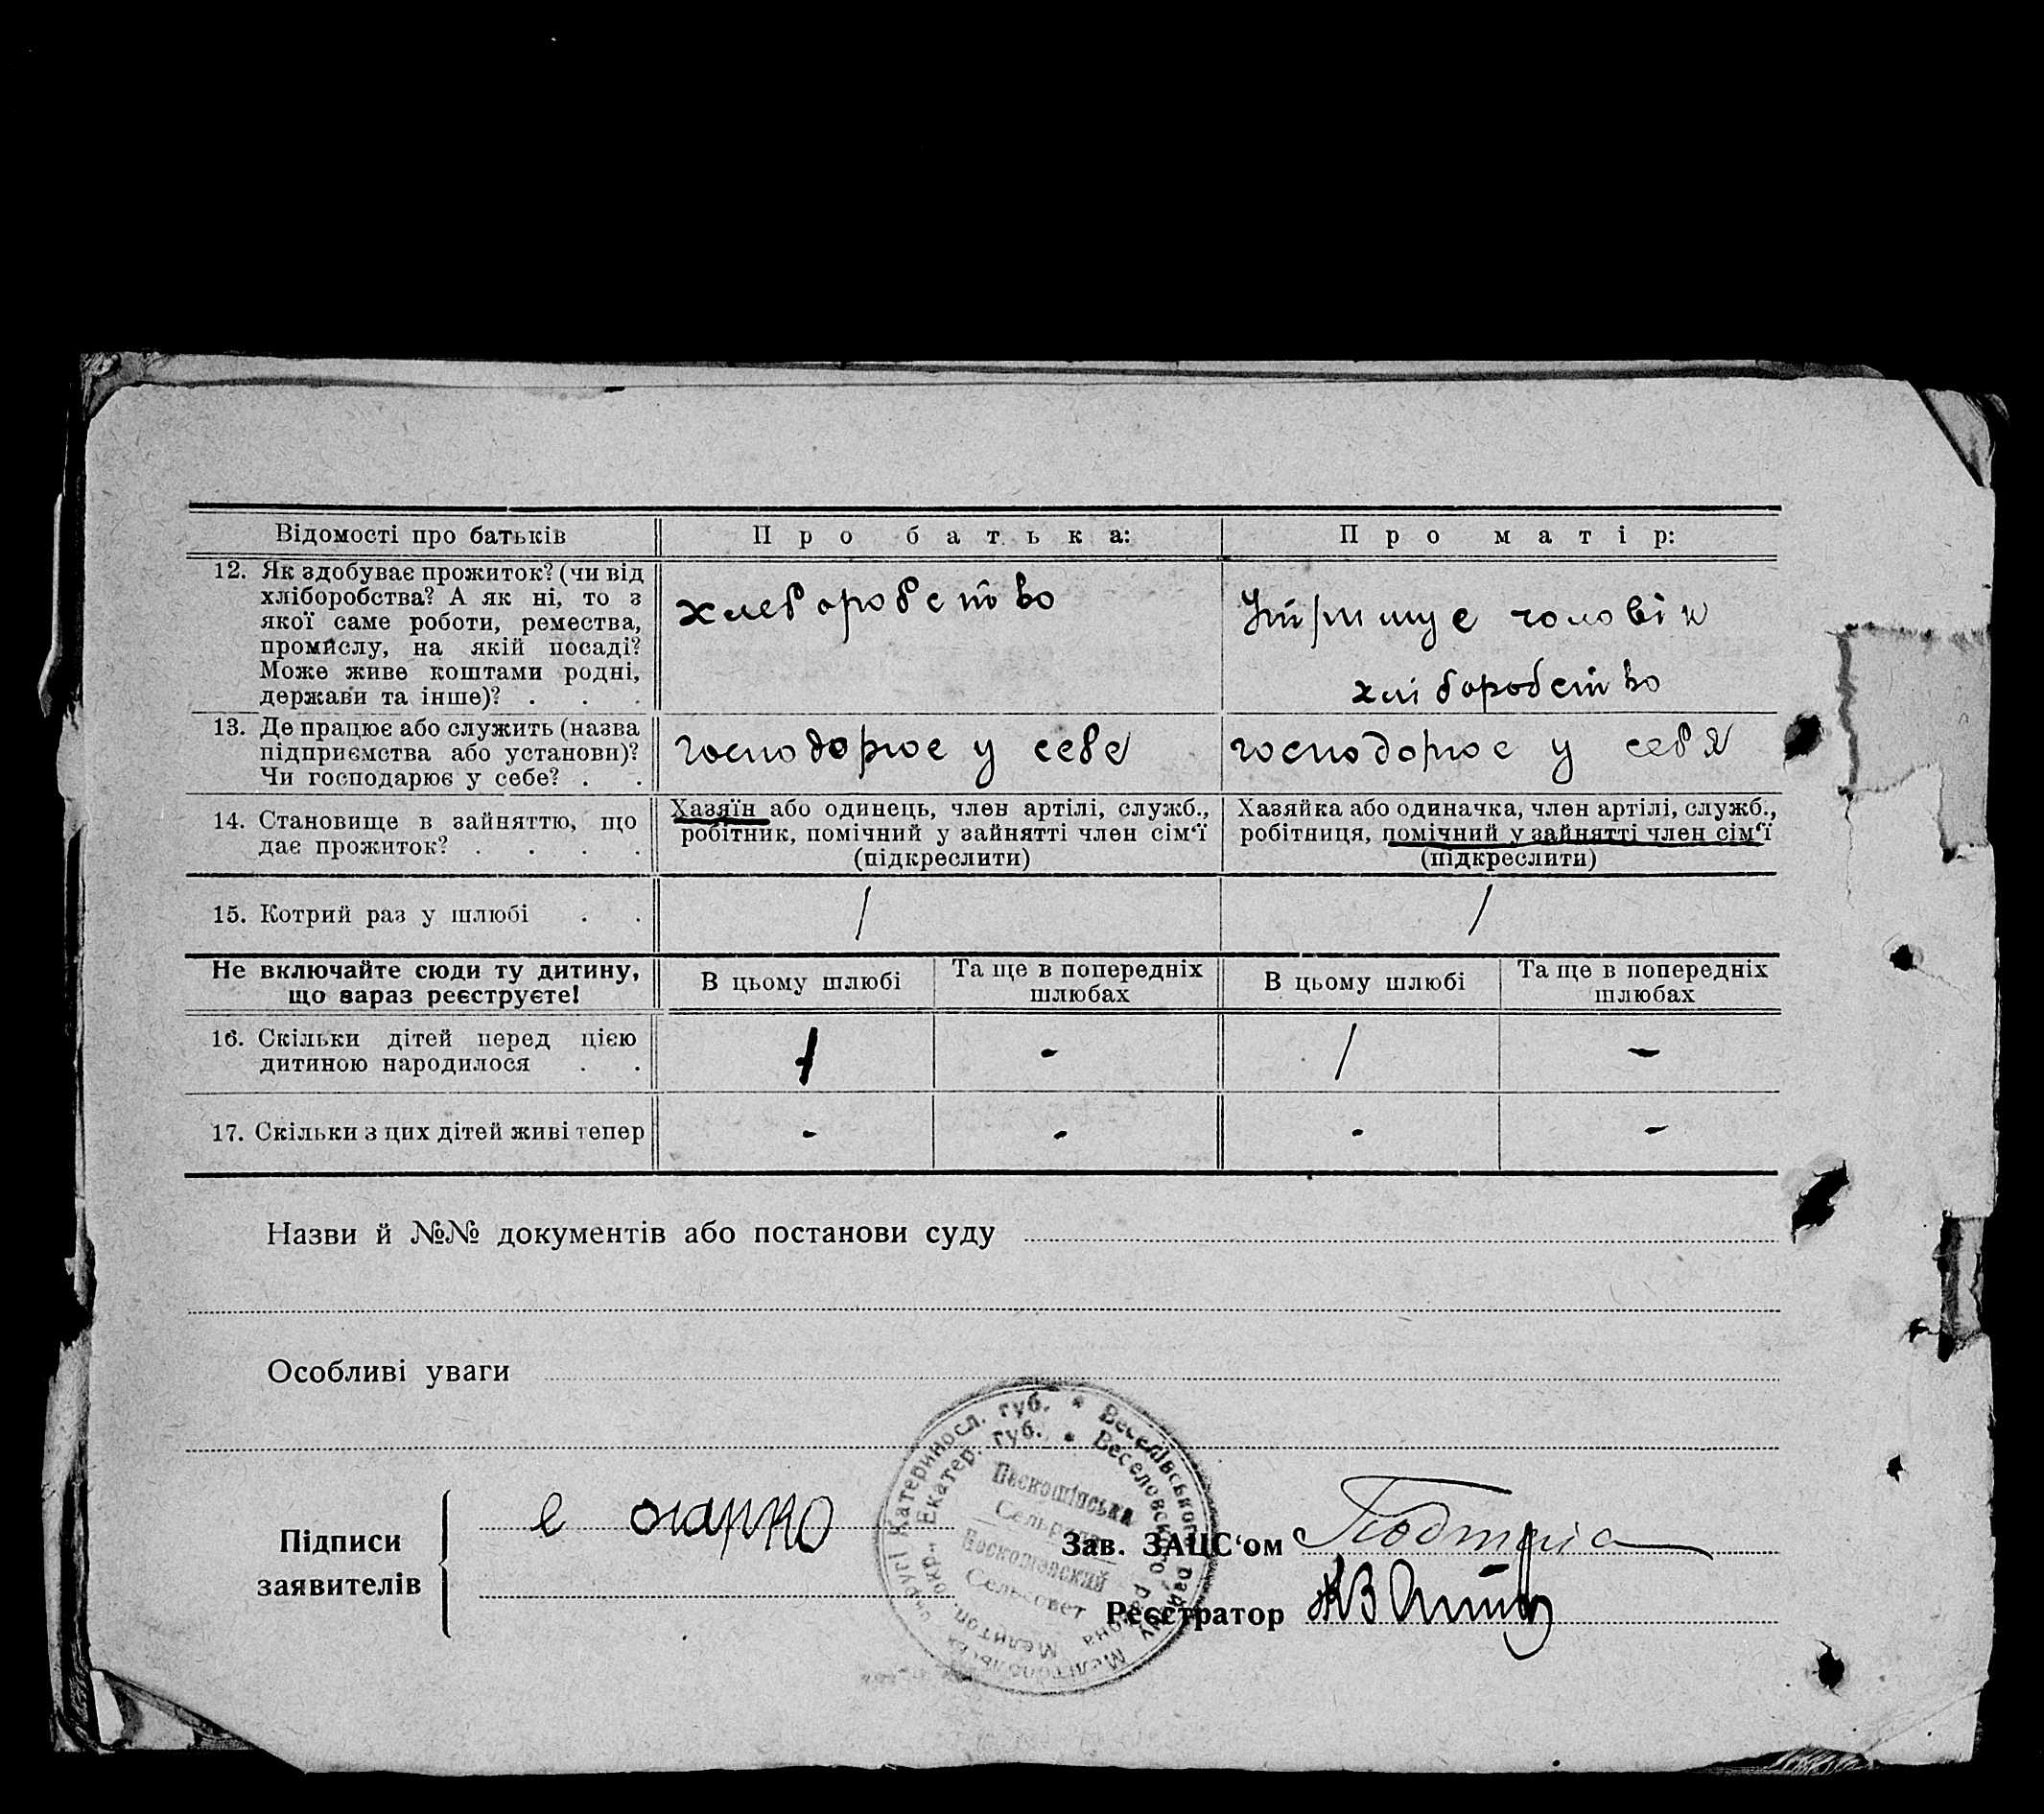 Відомості про батьків
Про батька:
Про матір:
12. Як здобуває прожиток? (чи від
хліборобства? А як ні, то з
якої саме роботи, ремества,
промислу, на якій посаді?
Може живе коштами родні,
держави та інше)? . . .
хлеборобство
Утримує чоловік
хліборобство
13. Де працює або служить (назва
підприємства або установи)?
Чи господарює у себе? . .
господорює у себе
господорює у себя
14. Становище в зайняттю, що
дає прожиток? . . . .
Хазяїн або одинець, член артілі, служб.,
робітник, помічний у зайнятті член сім'ї
(підкреслити)
Хазяйка або одиначка, член артілі, служб.,
робітниця, помічний у зайнятті член сім'ї
(підкреслити)
15. Котрий раз у шлюбі . .
/
/
Не включайте сюди ту дитину,
що зараз реєструєте!
В цьому шлюбі
Та ще в попередніх
шлюбах
В цьому шлюбі
Та ще в попередніх
шлюбах
16. Скільки дітей перед цією
дитиною народилося . .
1
-
/
-
17. Скільки з цих дітей живі тепер
-
-
-
-
Назви й №№ документів або постанови суду
Особливі уваги
Катериносл. губ. * Веселівського району Мелітопольськ. округи
Екатер. губ. * Веселовского района Мелитоп. окр.
Сельрада
Сельсовет
Підписи
заявителів
Зав. ЗАЦС'ом
Реєстратор